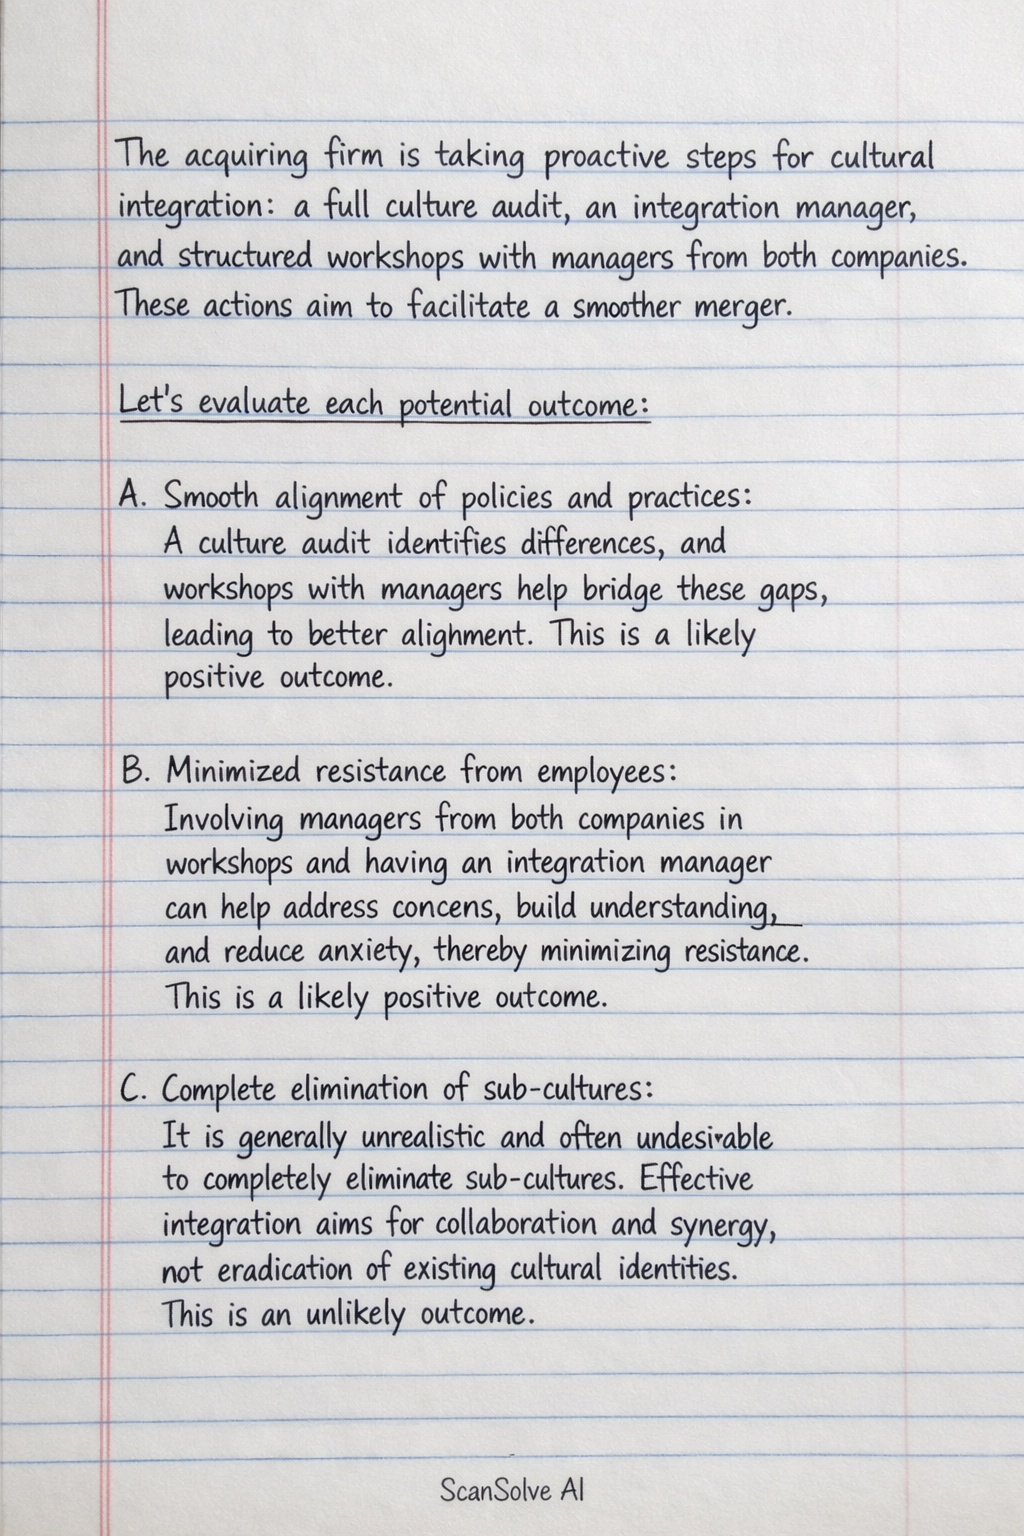 The acquiring firm is taking proactive steps for cultural
integration: a full culture audit, an integration manager,
and structured workshops with managers from both companies.
These actions aim to facilitate a smoother merger.
Let's evaluate each potential outcome:
A. Smooth alignment of policies and practices:
A culture audit identifies differences, and
workshops with managers help bridge these gaps,
leading to better alighment. This is a likely
positive outcome.
B. Minimized resistance from employees:
Involving managers from both companies in
workshops and having an integration manager
can help address concens, build understanding,
and reduce anxiety, thereby minimizing resistance.
This is a likely positive outcome.
C. Complete elimination of sub-cultures:
It is generally unrealistic and often undesirable
to completely eliminate sub-cultures. Effective
integration aims for collaboration and synergy,
not eradication of existing cultural identities.
This is an unlikely outcome.
ScanSolve AI